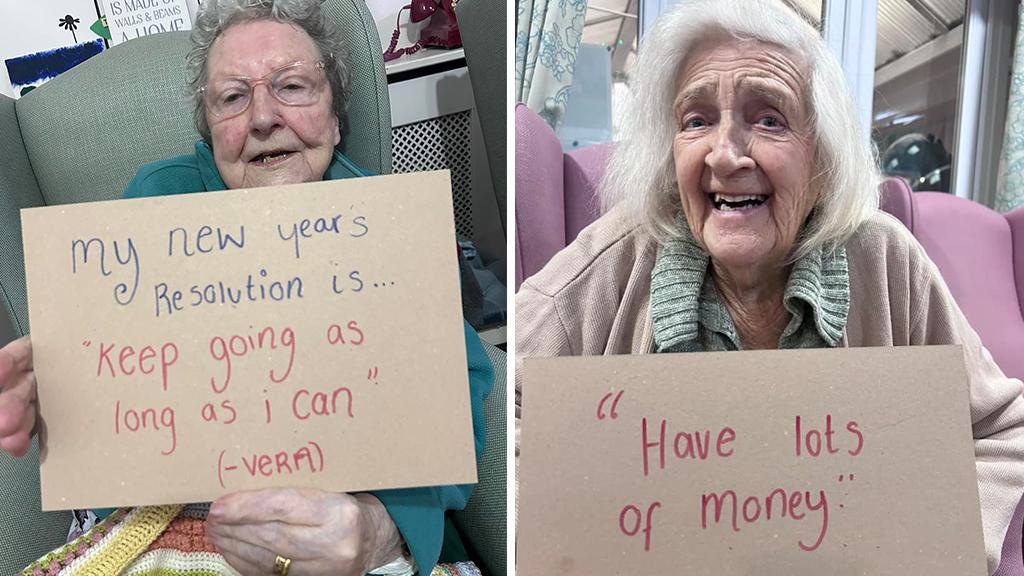 IS MADE OF
WALLS & BEAMS
A HOME
My new year's
Resolution is...
"Keep going as
long as i can"
(-VERA)
"Have lots
of money"